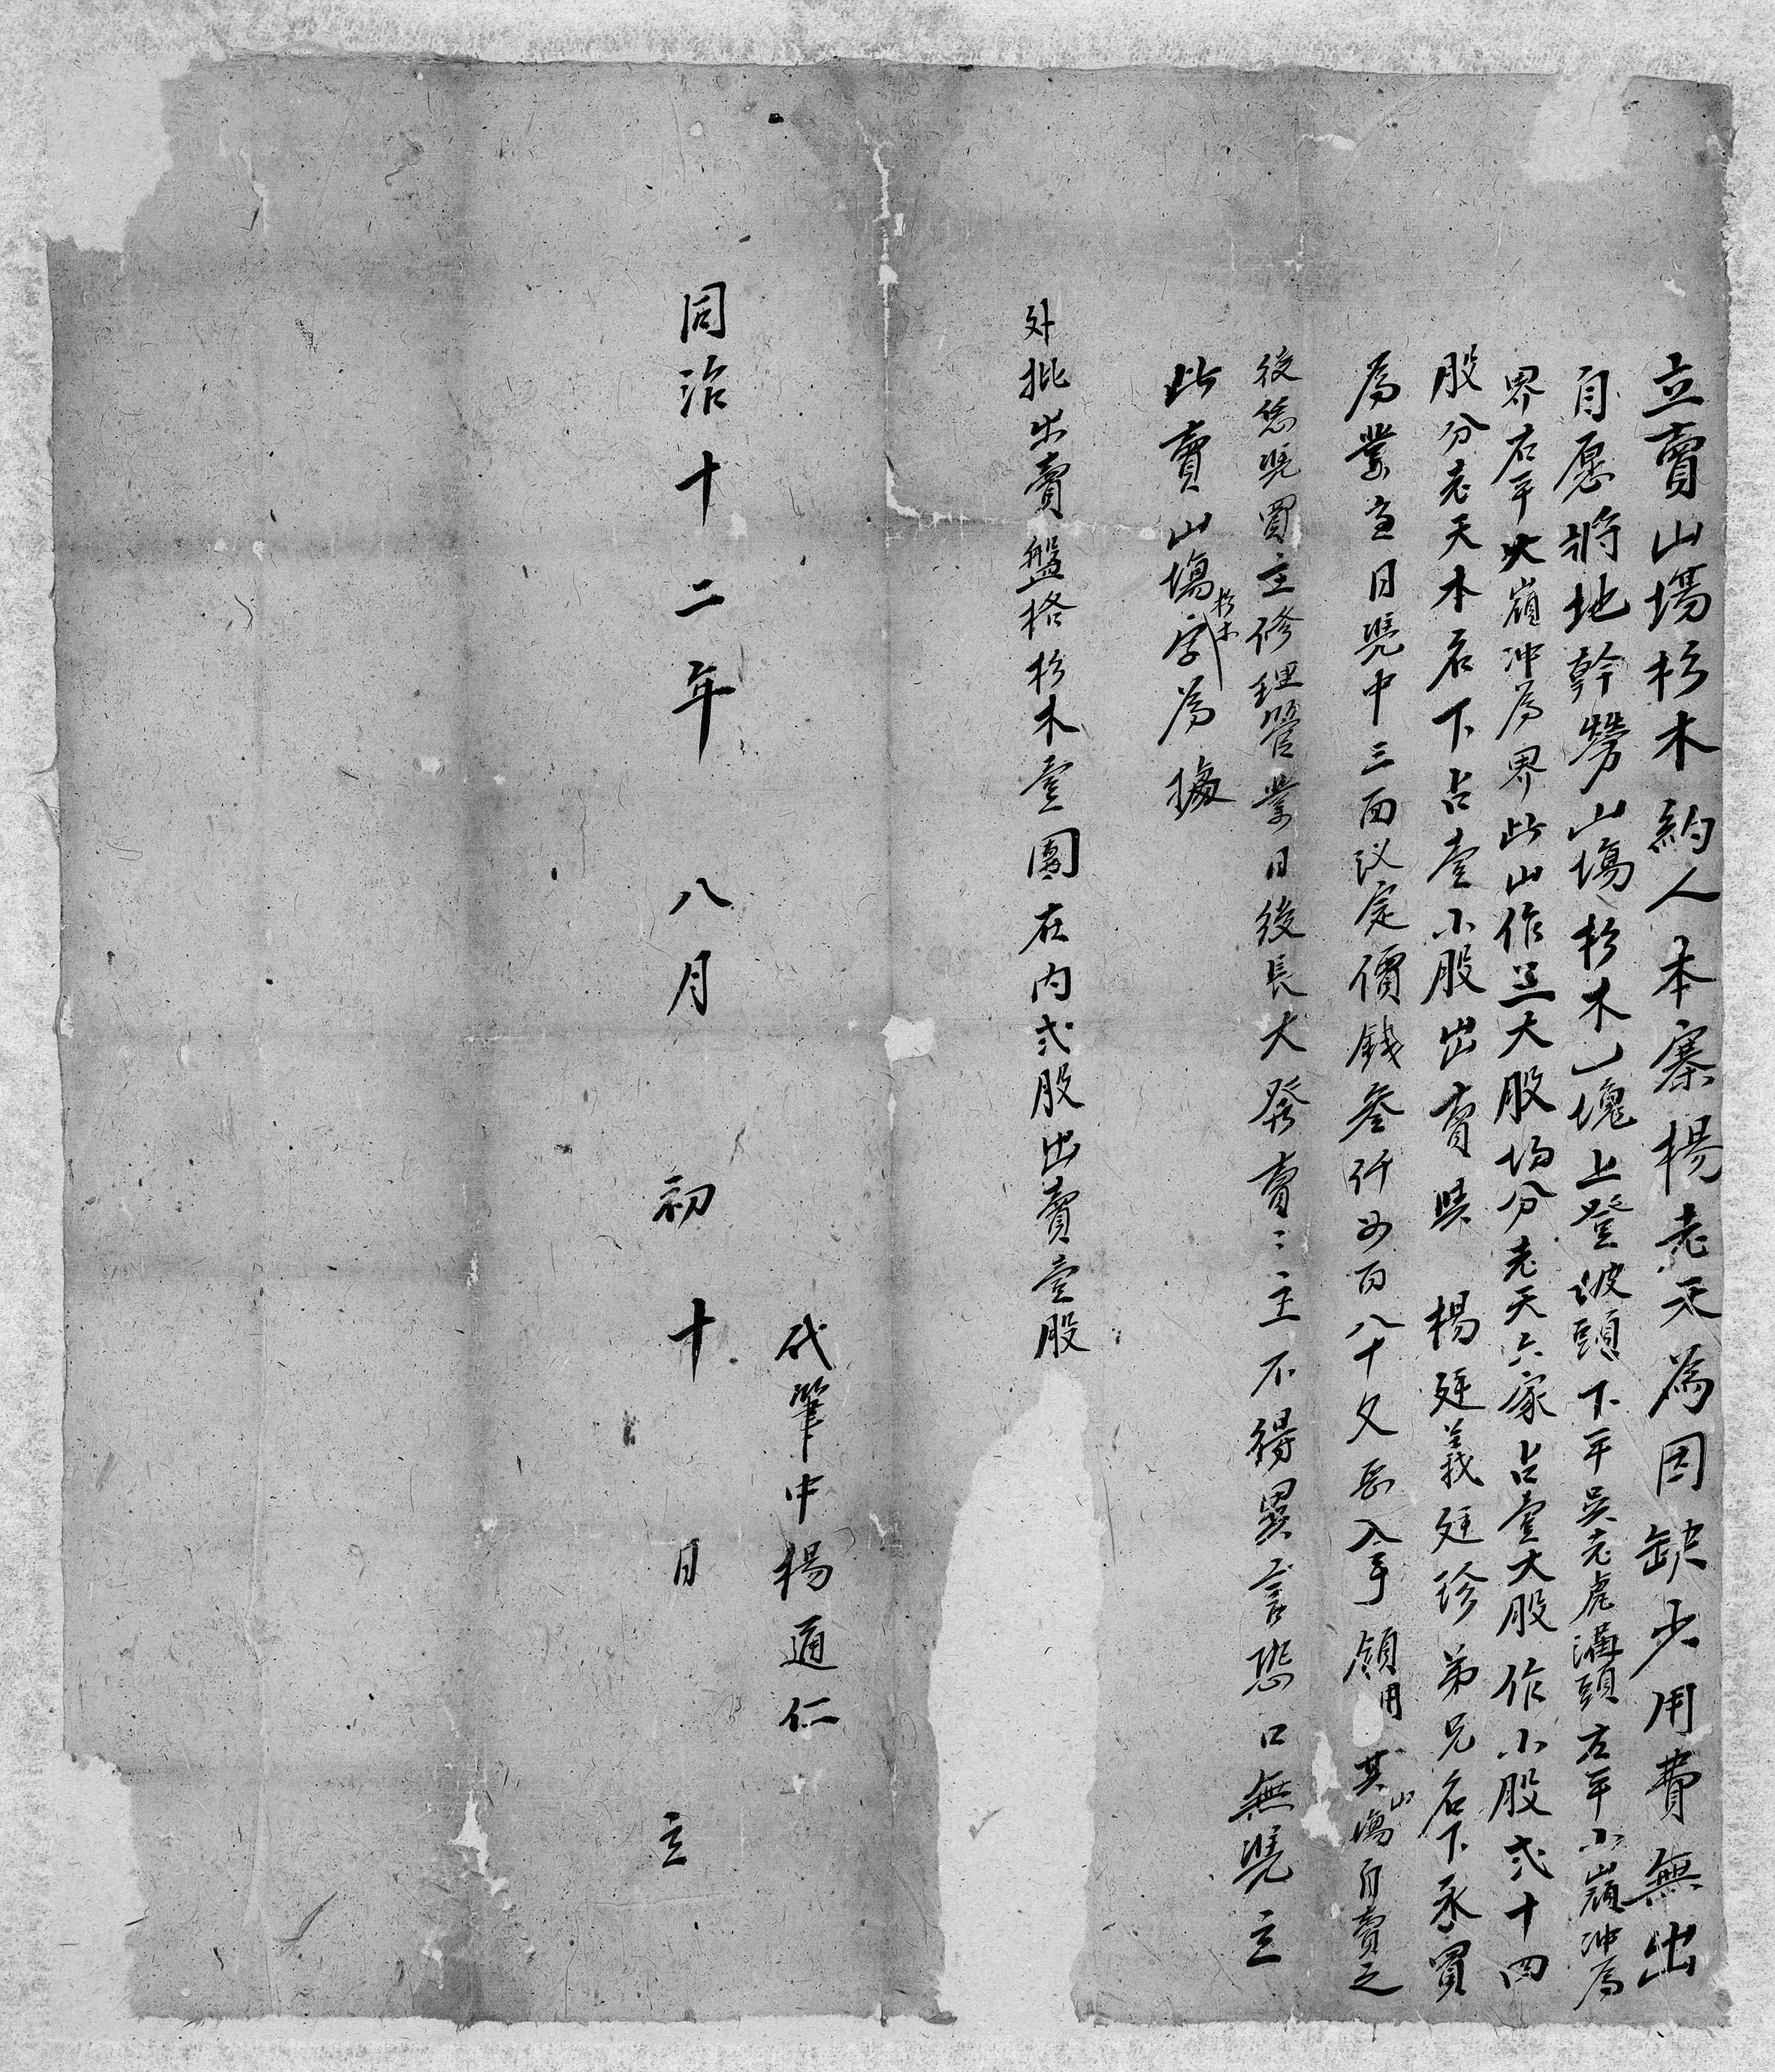 立賣山塲杉木約人本寨楊老天為因缺少用費無出
自愿將地幹勞山塲杉木一塊上登波頭下平吳老虎溝頭左平小嶺冲為
界右平大嶺冲為界此山作三大股均分老天六家占壹大股作小股弍十四
股分老天本名下占壹小股出賣與楊廷義廷珍弟兄名下承買
為業當日凴中三面议定價錢叁仟 百八十文 入手領用其山塲自賣之
後恁凴買主修理管業日後長大發賣〻主不得異言恐口無凴立
此賣山塲杉木字為據
外批出賣盤格杉木壹團在内弍股出賣壹股
代筆中楊通仁
同治十二年八月初十日立